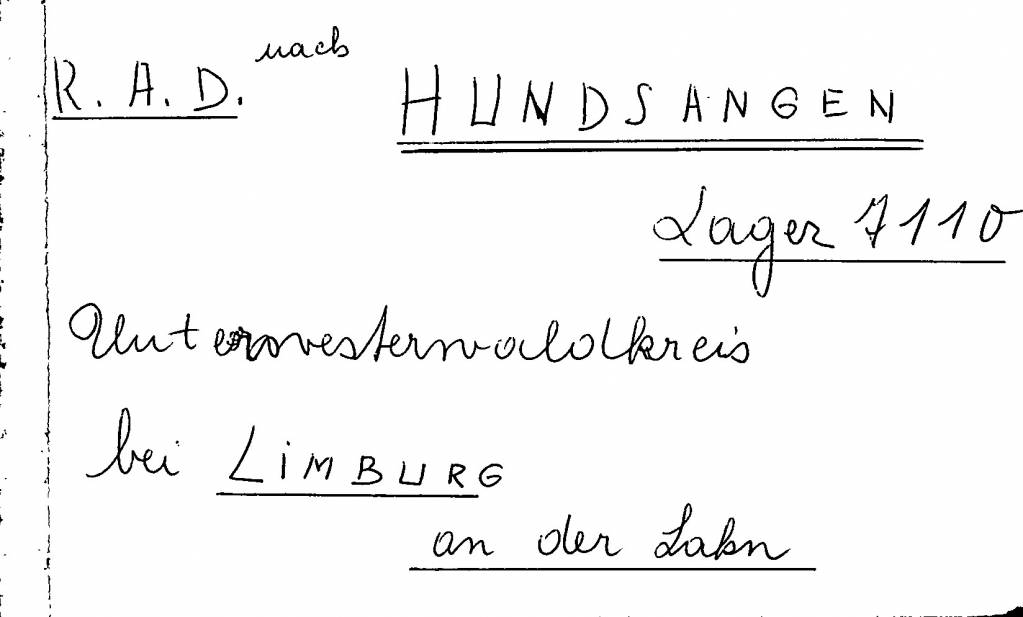 R. A. D. nach HUNDSANGEN
Lager 7110
Unterwesterwaldkreis
bei LiMBURG
an der Lahn